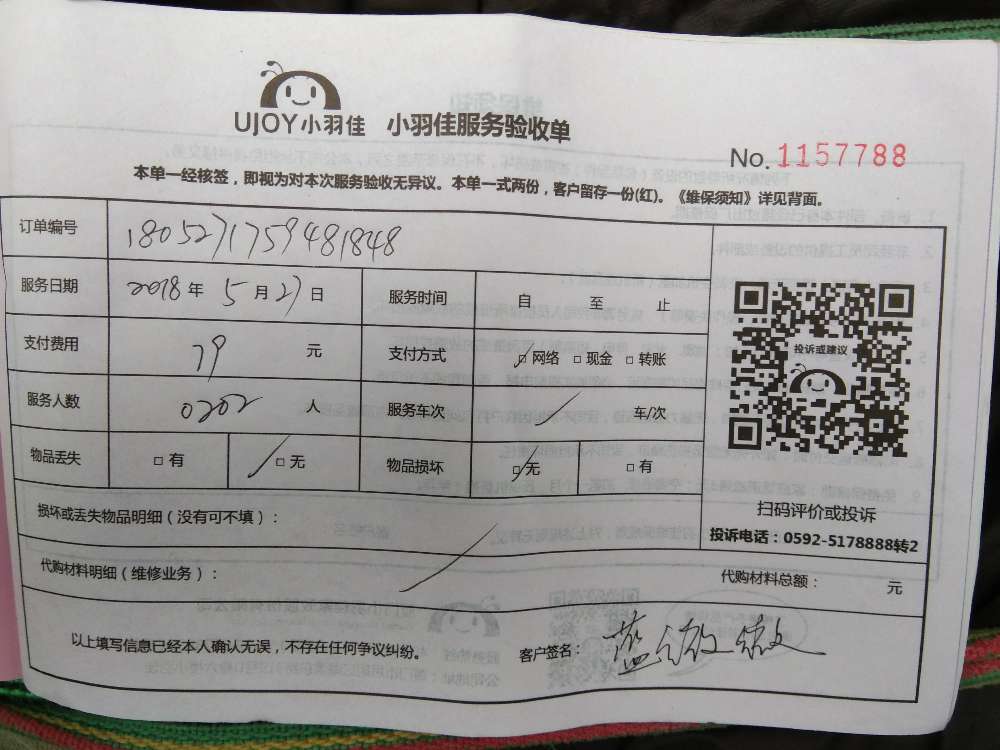 UJOY小羽佳 小羽佳服务验收单
No. 1157788
本单一经核签，即视为对本次服务验收无异议。本单一式两份，客户留存一份(红)。《维保须知》详见背面。
订单编号 1805271759481848
服务日期 2018年5月27日 服务时间 自 至 止
支付费用 79 元 支付方式 □网络 □现金 □转账
服务人数 0202 人 服务车次 / 车/次
物品丢失 □有 □无 物品损坏 □无 □有
投诉或建议
扫码评价或投诉
投诉电话：0592-5178888转2
损坏或丢失物品明细（没有可不填）：
代购材料明细（维修业务）： 代购材料总额： 元
以上填写信息已经本人确认无误，不存在任何争议纠纷。 客户签名： 蓝微微